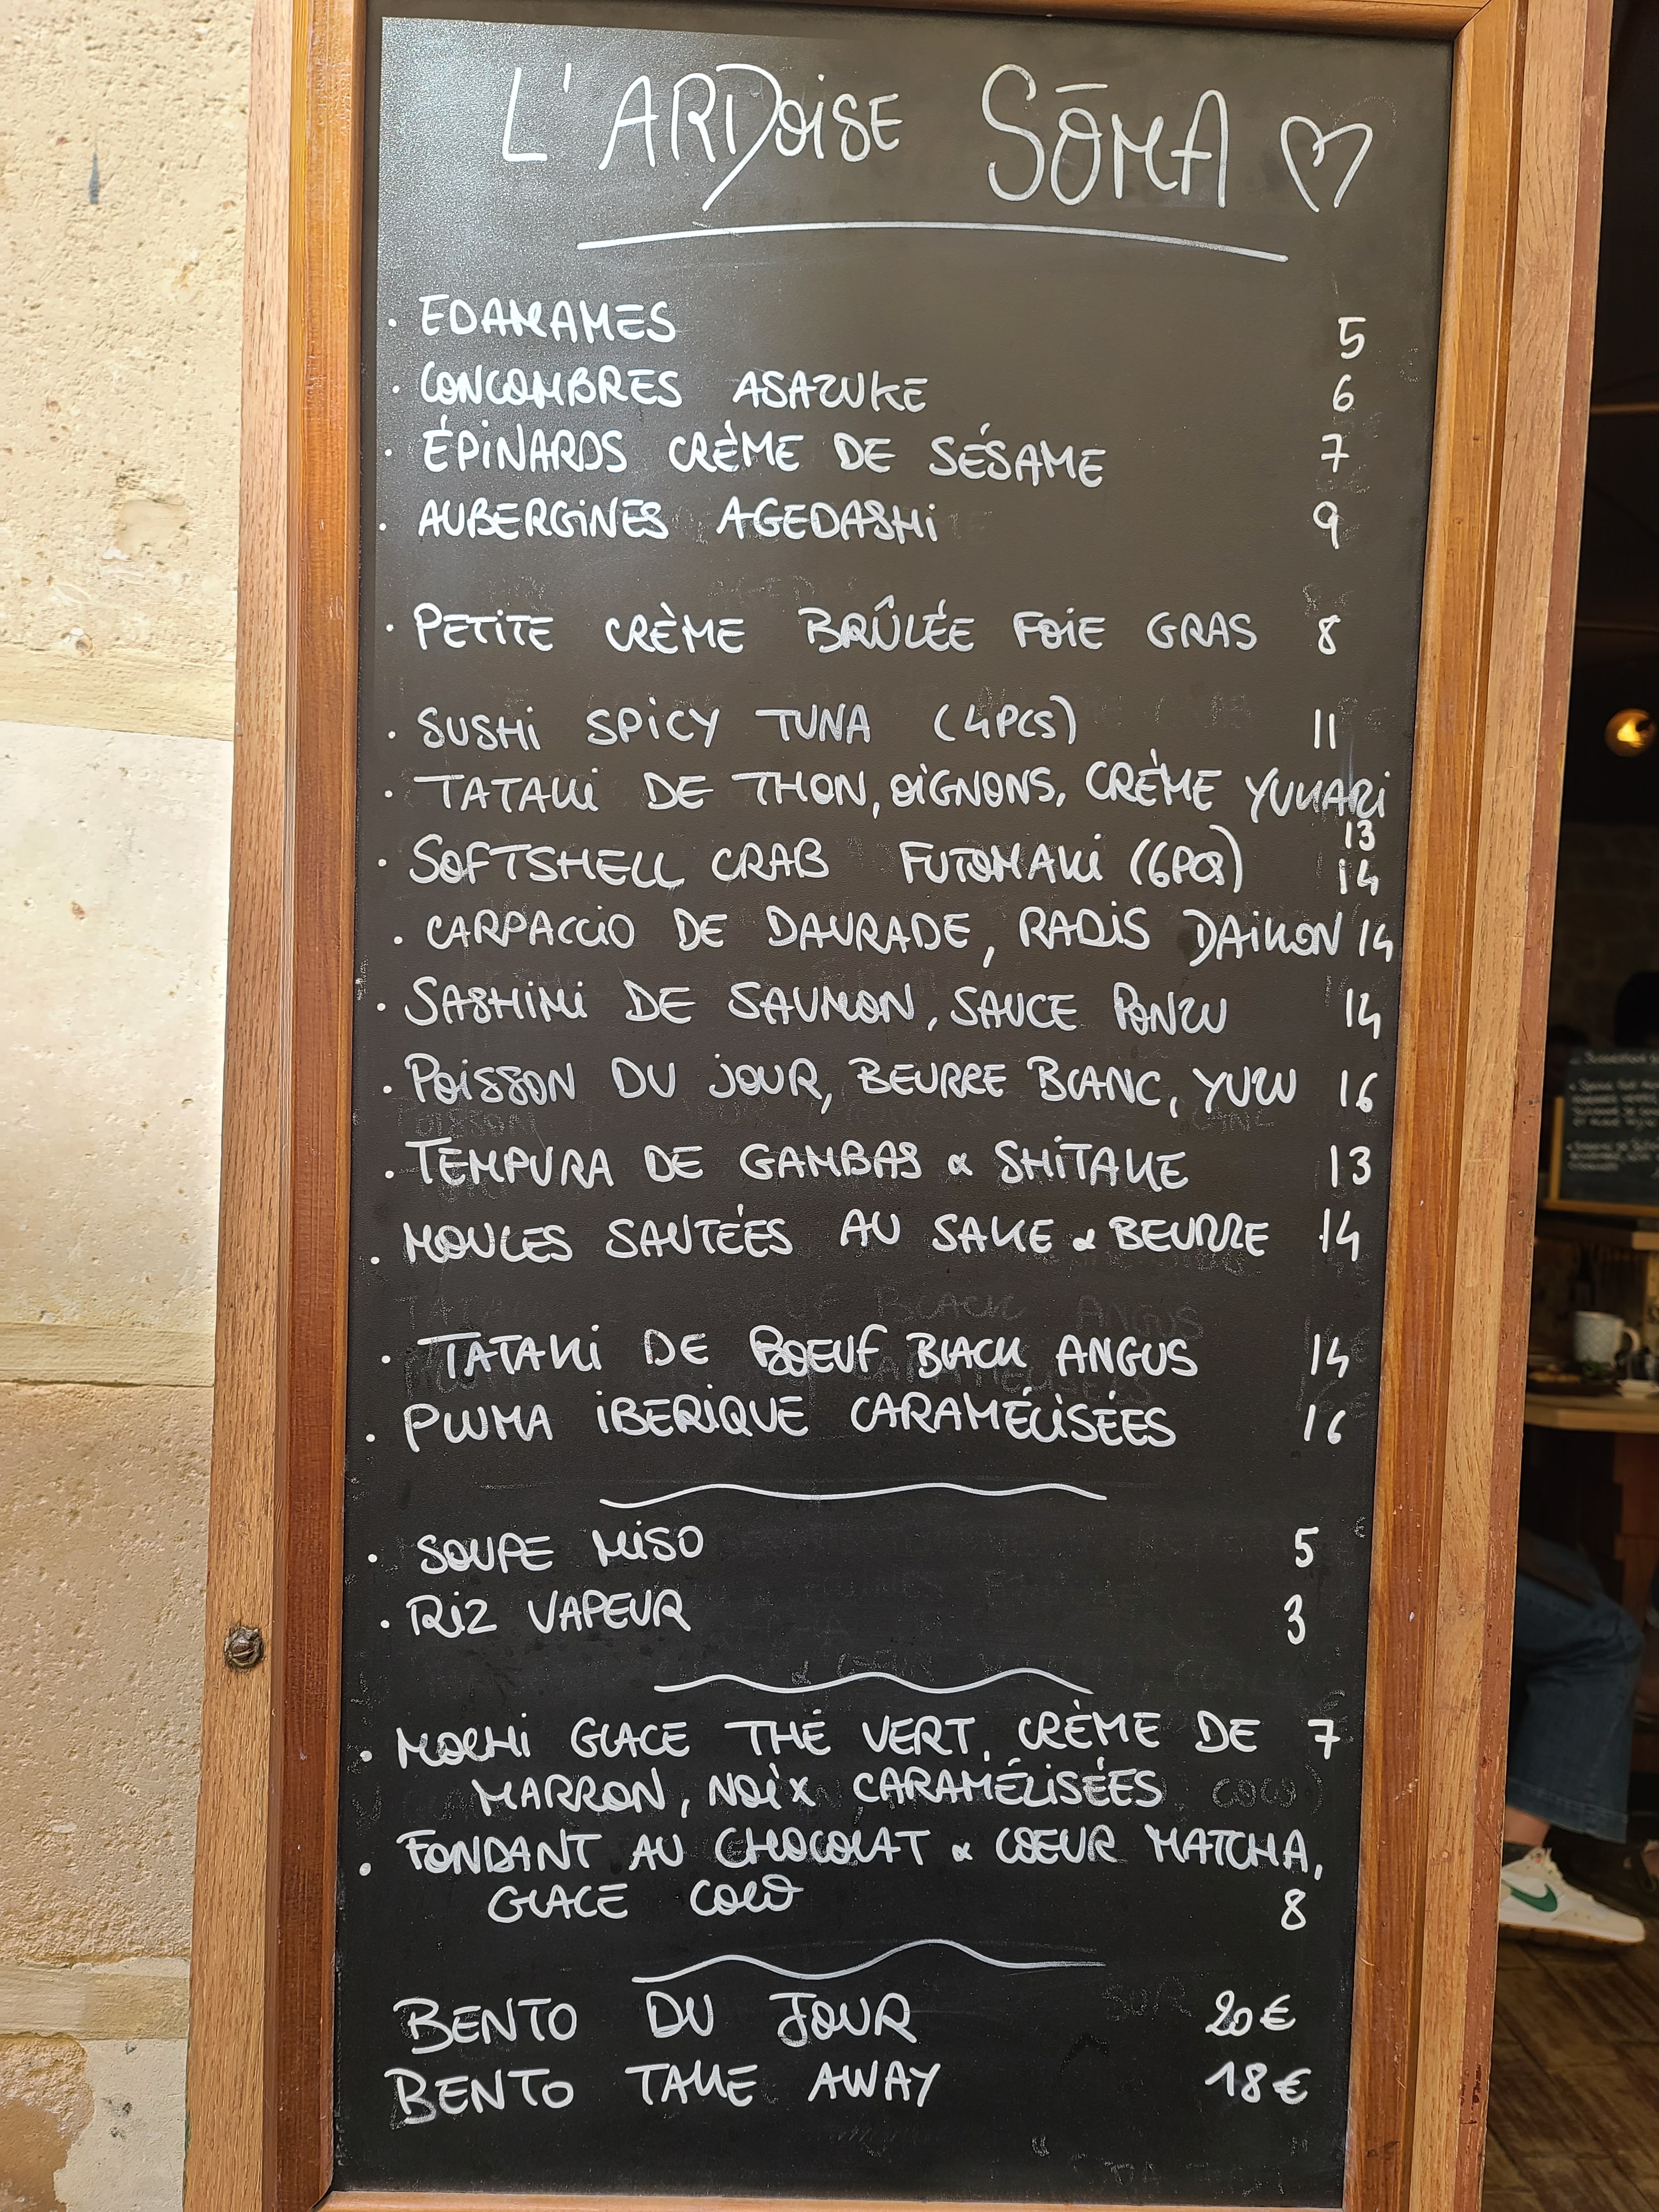 L'ARDOISE SŌMA
. EDAMAMES 5
. CONCOMBRES ASAZUKE 6
. ÉPINARDS CRÈME DE SÉSAME 7
. AUBERGINES AGEDASHI 9
. PETITE CRÈME BRÛLÉE FOIE GRAS 8
. SUSHI SPICY TUNA (4PCS) 11
. TATAKI DE THON, OIGNONS, CRÈME YUKARI
13
. SOFTSHELL CRAB FUTOMAKI (6PCS) 14
. CARPACCIO DE DAURADE, RADIS DAIKON 14
. SASHIMI DE SAUMON, SAUCE PONZU 14
. POISSON DU JOUR, BEURRE BLANC, YUZU 16
. TEMPURA DE GAMBAS & SHITAKE 13
. MOULES SAUTÉES AU SAKE & BEURRE 14
. TATAKI DE BOEUF BLACK ANGUS 14
. PLUMA IBERIQUE CARAMÉLISÉES 16
. SOUPE MISO 5
. RIZ VAPEUR 3
. MOCHI GLACE THÉ VERT, CRÈME DE 7
MARRON, NOIX CARAMÉLISÉES
. FONDANT AU CHOCOLAT & COEUR MATCHA,
GLACE COCO 8
BENTO DU JOUR 20€
BENTO TAKE AWAY 18€